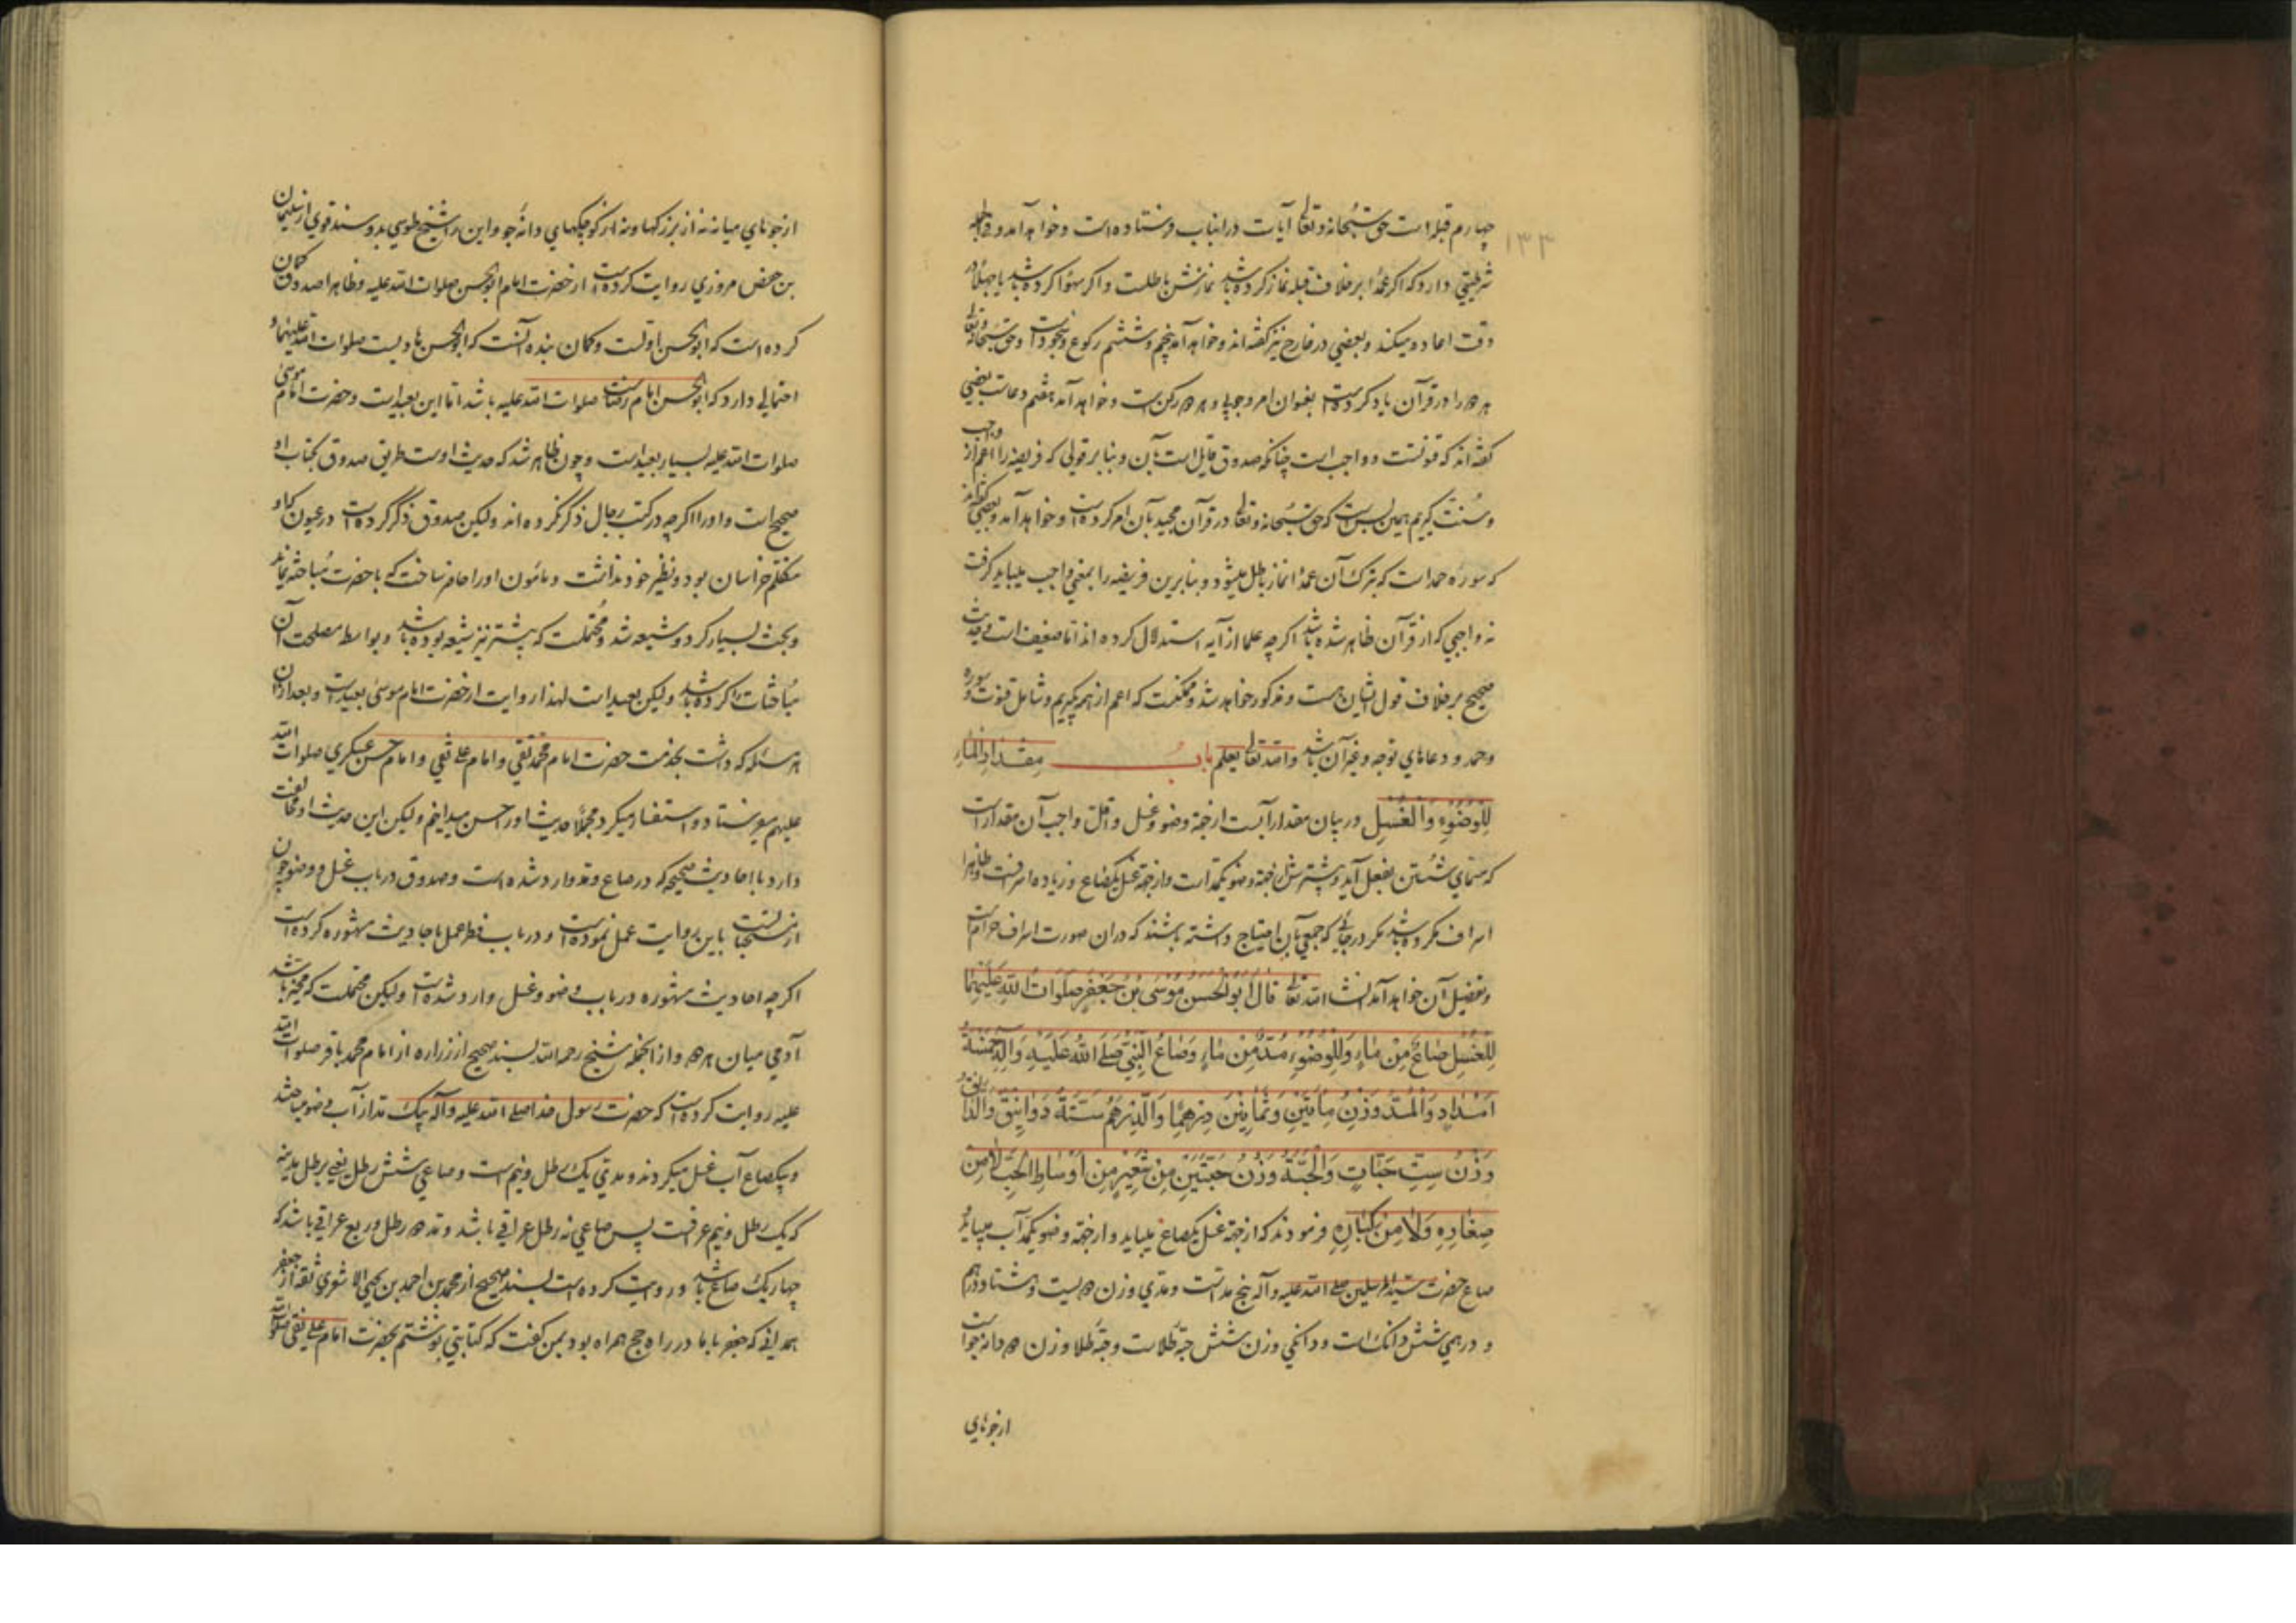 ۱۳۳
چهارم قبله است حق سبحانه و تعالی آیات در این باب فرستاده است و خواهد آمد و
شرطیتی دارد که اگر عمدا بر خلاف قبله نماز کرده باشد نمازش باطلست و اگر سهوا کرده باشد یا جهلا در
وقت اعاده میکند و بعضی در خارج نیز گفته‌اند و خواهد آمد پنجم و ششم رکوع و سجود است و حق سبحانه و تعالی
هر دو را در قرآن یاد کرده است بعنوان امر وجوبی و هر دو رکن است و خواهد آمد هفتم دعاست بعضی
گفته‌اند که قنوتست و واجب است چنانکه صدوق قایل است بآن و بنا بر قولی که فریضه را اعم از واجب
و سنت گیریم همین بس است که حق سبحانه و تعالی در قرآن مجید بآن امر کرده است و خواهد آمد و بعضی گفته‌اند
که سوره حمد است که بترک آن عمدا نماز باطل میشود و بنابرین فریضه را بمعنی واجب میباید گرفت
نه واجبی که از قرآن ظاهر شده باشد اگر چه علما از آیه استدلال کرده‌اند اما ضعیف است و حدیث
صحیح بر خلاف قول ایشان هست و مذکور خواهد شد و ممکنست که اعم از همه گیریم و شامل قنوت و سوره
و حمد و دعاهای توجه و غیر آن باشد و الله تعالی یعلم باب مقدار الماء
للوضوء والغسل در بیان مقدار آبست از جهة وضو و غسل و اقل واجب آن مقدار است
که مسمای شستن بفعل آید و پیشترش از جهة وضو یکمد است و از جهة غسل یکصاع و زیاده اسرافست و ظاهرا
اسراف مکروه باشد مگر در جائی که جمعی بآن احتیاج داشته باشند که در آن صورت اسراف حرام است
و تفصیل آن خواهد آمد انشاء الله تعالی قال ابو الحسن موسی بن جعفر صلوات الله علیهما
للغسل صاع من ماء وللوضوء مد من ماء وصاع النبی صلی الله علیه وآله خمسة
امداد والمد وزن مأتین وثمانین درهما والدرهم ستة دوانیق والدانق
وزن ست حبات والحبة وزن حبتین من شعیر من اوساط الحب لا من
صغاره ولا من کباره فرمودند که از جهة غسل یکصاع میباید و از جهة وضو یکمد آب میباید و
صاع حضرت سید المرسلین صلی الله علیه وآله پنج مد است و مدی وزن دویست و هشتاد درهم
و درهمی شش دانگ است و دانگی وزن شش حبه طلاست و حبه طلا وزن دو دانه جو است
از جوهای
از جوهای میانه نه از بزرگها و نه از کوچکهای دانه جو و این را شیخ طوسی بدو سند قوی از سلیمان
بن حفص مروزی روایت کرده است از حضرت امام ابو الحسن صلوات الله علیه و ظاهرا صدوق گمان
کرده است که ابو الحسن اولست و گمان بنده آنست که ابو الحسن هادیست صلوات الله علیهما و
احتمالی دارد که ابو الحسن امام رضا صلوات الله علیه باشد اما این بعید است و حضرت امام موسی
صلوات الله علیه بسیار بعید است و چون ظاهر شد که حدیث اوست طریق صدوق بکتاب او
صحیح است و او را اگر چه در کتب رجال ذکر نکرده‌اند ولیکن صدوق ذکر کرده است در عیون که او
متکلم خراسان بود و نظیر خود نداشت و مأمون او را حاضر ساخت که با حضرت مباحثه نماید
و بحث بسیار کرد و شیعه شد و محتملست که پیشتر نیز شیعه بوده باشد و بواسطه مصلحت آن
مباحثات را کرده باشد ولیکن بعید است لهذا روایت از حضرت امام موسی بعید است و بعد از آن
هر مسئله که داشت بخدمت حضرت امام محمد تقی و امام علی نقی و امام حسن عسکری صلوات الله
علیهم میفرستاد و استفسار میکرد مجملا حدیث او را حسن میدانیم ولیکن این حدیث او مخالفت
دارد با احادیث صحیحه که در صاع و مد وارد شده است و صدوق در باب غسل و وضو چون
از مستحبات باین روایت عمل نموده است و در باب فطر عمل باحادیث مشهوره کرده است
اگر چه احادیث مشهوره در باب وضو و غسل وارد شده است ولیکن محتملست که مخیر باشد
آدمی میان هر دو و از آنجمله شیخ رحمه الله بسند صحیح از زراره از امام محمد باقر صلوات الله
علیه روایت کرده است که حضرت رسول خدا صلی الله علیه وآله بیک مد از آب وضو میساختند
و بیکصاع آب غسل میکردند و مدی یک رطل و نیم است و صاعی شش رطل یعنی برطل مدینه
که یک رطل و نیم عراقست پس صاعی نه رطل عراقی باشد و مد دو رطل و ربع عراقی باشد که
چهار یک صاع باشد و روایت کرده است بسند صحیح از محمد بن احمد بن یحیی الاشعری ثقه از جعفر
همدانی که جعفر با ما در راه حج همراه بود بمن گفت که کتابتی نوشتم بحضرت امام علی نقی صلوات الله